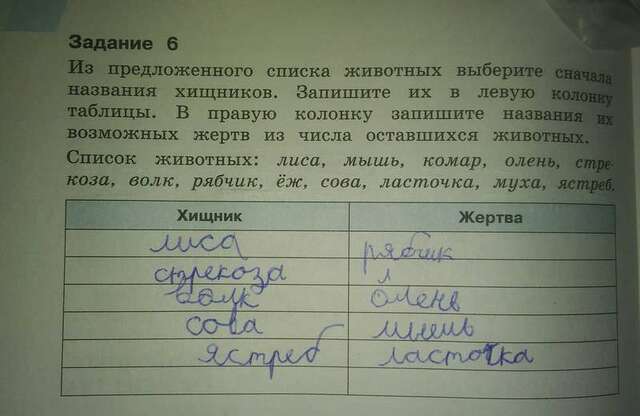 Задание 6
Из предложенного списка животных выберите сначала
названия хищников. Запишите их в левую колонку
таблицы. В правую колонку запишите названия их
возможных жертв из числа оставшихся животных.
Список животных: лиса, мышь, комар, олень, стре-
коза, волк, рябчик, ёж, сова, ласточка, муха, ястреб.
Хищник Жертва
лиса рябчик
стрекоза л
волк олень
сова мышь
ястреб ласточка